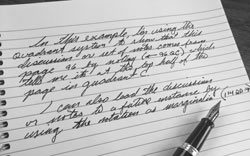 In this example, I'm using the
quadrant system to show that this
discussion or set of notes comes from
page 36 by noting (→ 36C) which
tells me it's at the by half of the
page in quadrant C
I can also lead the discussion
or notes to a future instance by
using the notation as marginalia (→ 40